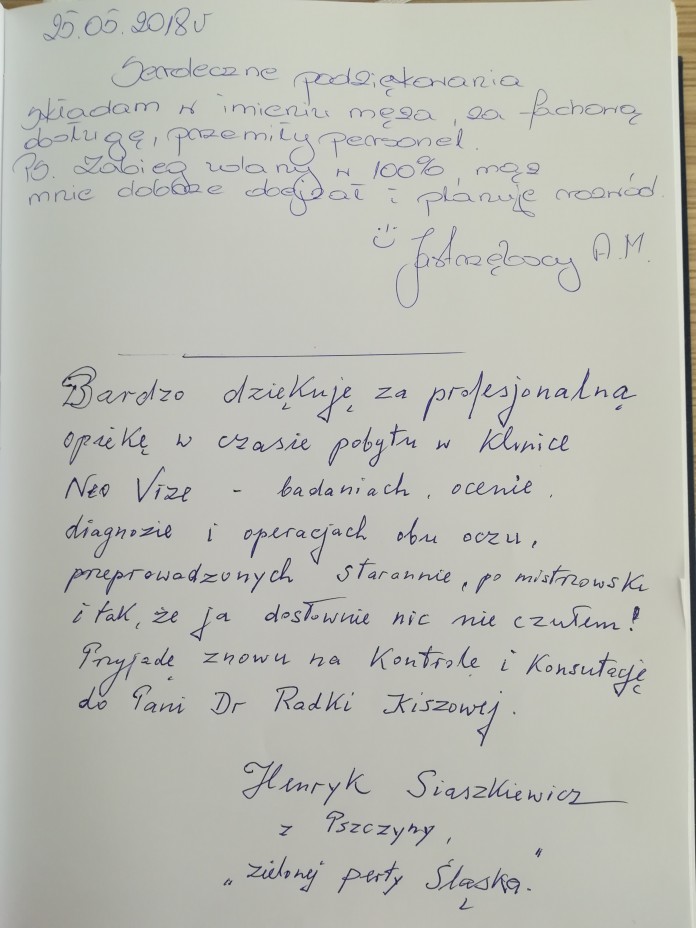 25.05.2018r
Serdeczne podziękowania
składam w imieniu męża, za fachową
obsługę, przemiły personel.
PS. Zabieg udany w 100%, mąż
mnie dobrze obejrzał i planuje rozwód.
:) Jastrzębscy A.M.
Bardzo dziękuję za profesjonalną
opiekę w czasie pobytu w klinice
Neo Vize - badaniach, ocenie,
diagnozie i operacjach obu oczu,
przeprowadzonych starannie, po mistrzowski
i tak, że ja dosłownie nic nie czułem!
Przyjadę znowu na kontrolę i konsutację
do Pani Dr Radki Kiszowej.
Henryk Siaszkiewicz
z Pszczyny,
„zielonej perły Śląska."